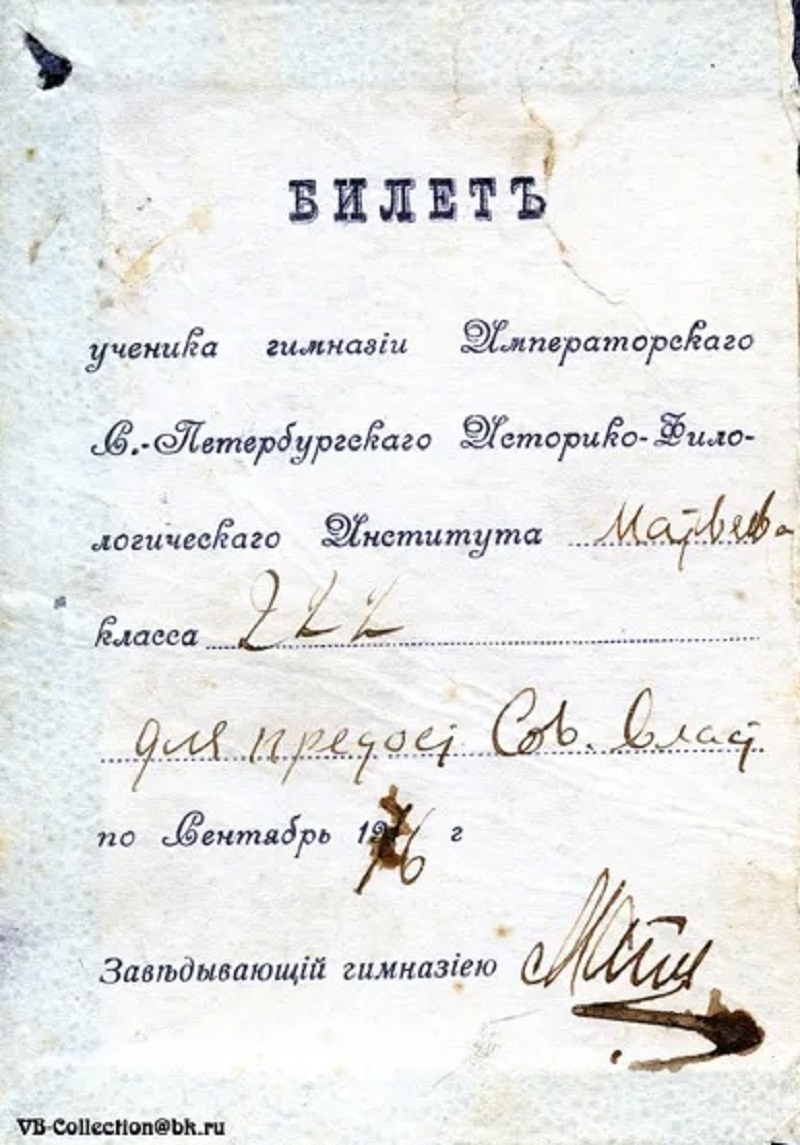 БИЛЕТЪ
ученика гимназіи Императорскаго
С.-Петербургскаго Историко-Фило-
логическаго Института Матвѣева
класса
для предост Сов. Власт
по Сентябрь 19 6 г
Завѣдывающій гимназіею
VB-Collection@bk.ru